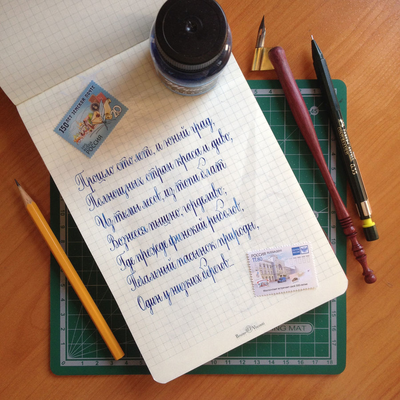 150 лет земской почте
РОССИЯ
Прошло сто лет, и юный град,
Полнощных стран краса и диво,
Из тьмы лесов, из топи блат
Вознесся пышно, горделиво;
Где прежде финский рыболов,
Печальный пасынок природы,
Один у низких берегов
РОССИЯ
NG MAT